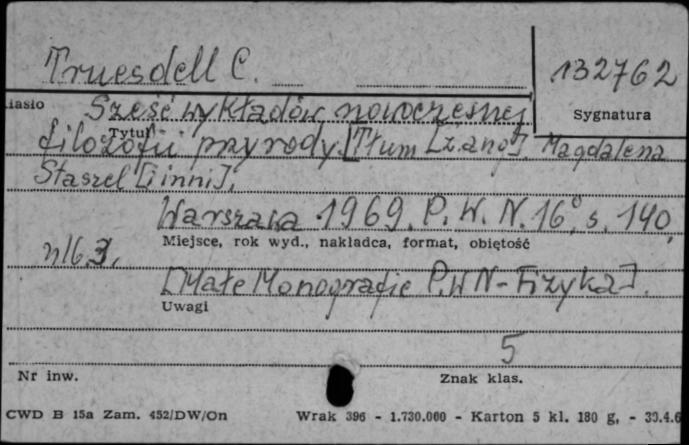 Truesdell C.
132762
iasło
Sygnatura
Sześć wykładów nowoczesnej
Tytuł
filozofii przyrody. [Tłum [z ang]. Magdalena
Staszel [i inni].
Warszawa 1969. P. W. N. 16°, s. 140,
Miejsce, rok wyd., nakładca, format, objętość
nlb 3.
[Małe Monografie PWN - Fizyka].
Uwagi
5
Nr inw.
Znak klas.
CWD B 15a Zam. 452/DW/On Wrak 396 - 1.730.000 - Karton 5 kl. 180 g, - 30.4.6